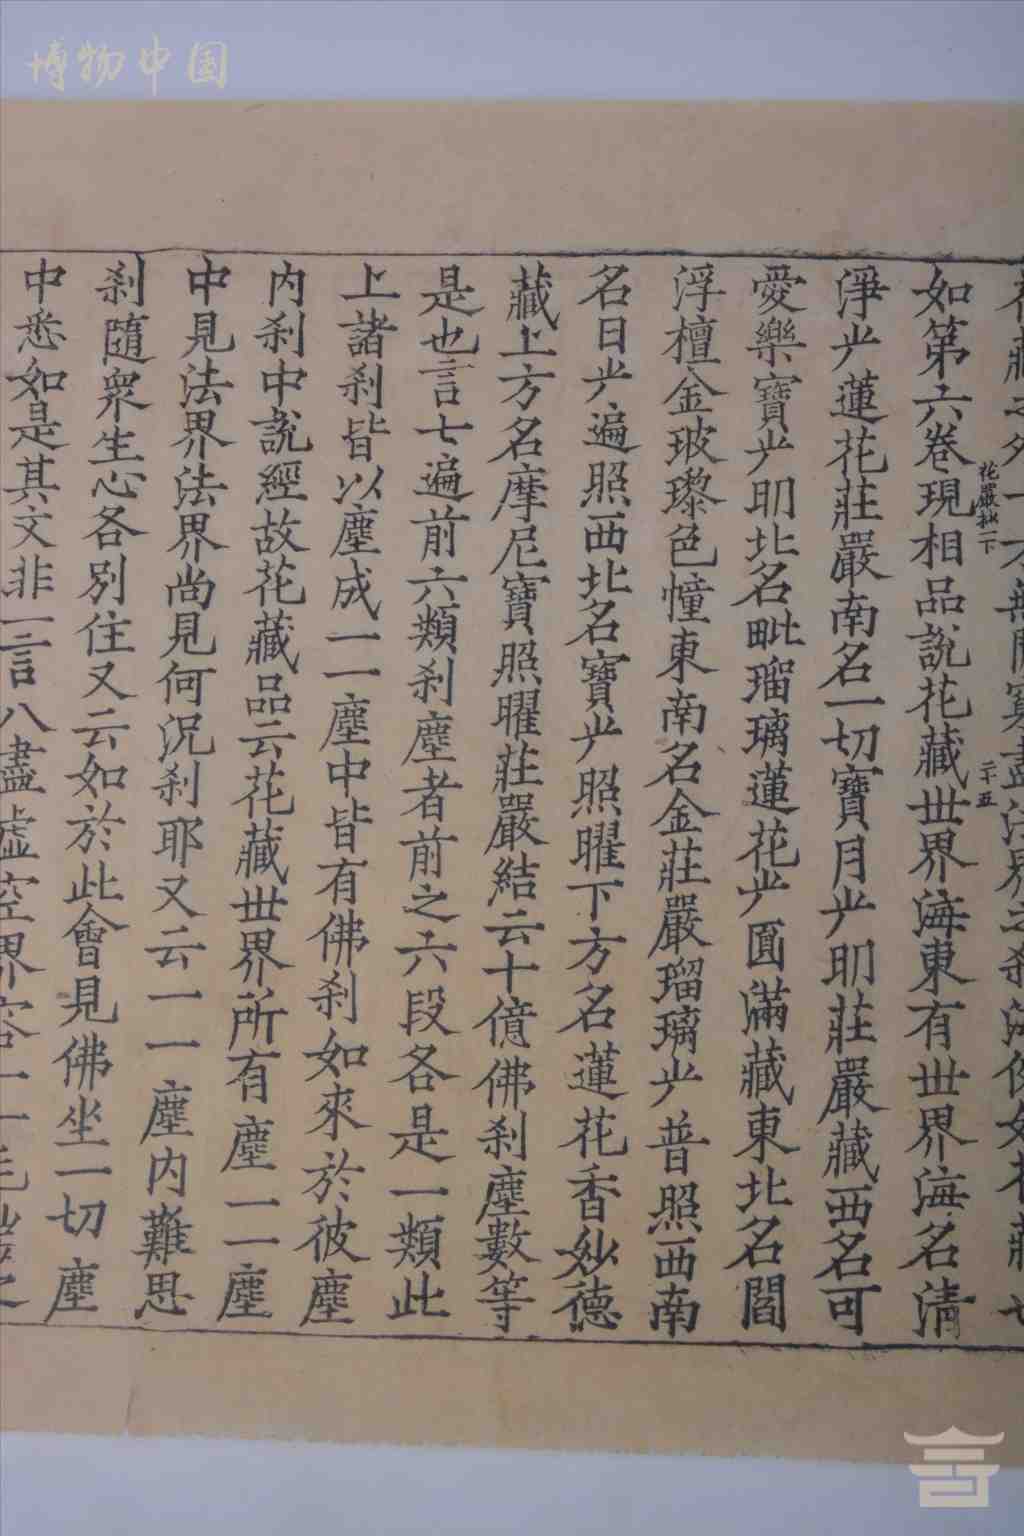 博物中国
花藏之外十方無間窮盡法界之刹海但如花藏世
花嚴抄一下
二十五
如第六卷現相品說花藏世界海東有世界海名清
淨光蓮花莊嚴南名一切寶月光明莊嚴藏西名可
愛樂寶光明北名毗瑠璃蓮花光圓滿藏東北名閻
浮檀金玻瓈色幢東南名金莊嚴瑠璃光普照西南
名日光遍照西北名寶光照曜下方名蓮花香妙德
藏上方名摩尼寶照曜莊嚴結云十億佛刹塵數等
是也言七遍前六類刹塵者前之六段各是一類此
上諸刹皆以塵成一一塵中皆有佛刹如來於彼塵
內刹中說經故花藏品云花藏世界所有塵一一塵
中見法界法界尚見何況刹耶又云一一塵內難思
刹隨衆生心各別住又云如於此會見佛坐一切塵
中悉如是其文非一言八盡虛空界容一一毛